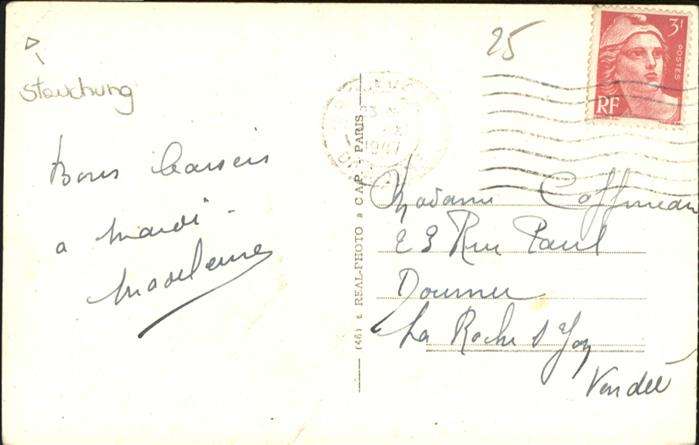 Stauchung
Bons baisers
a mardi.
Madeleine
25
3F
POSTES
RF
1947
(46) & REAL-PHOTO & C.A.P. - PARIS
Madame
23 Rue Paul
Doumer
La Roche s/Yon
Vendée